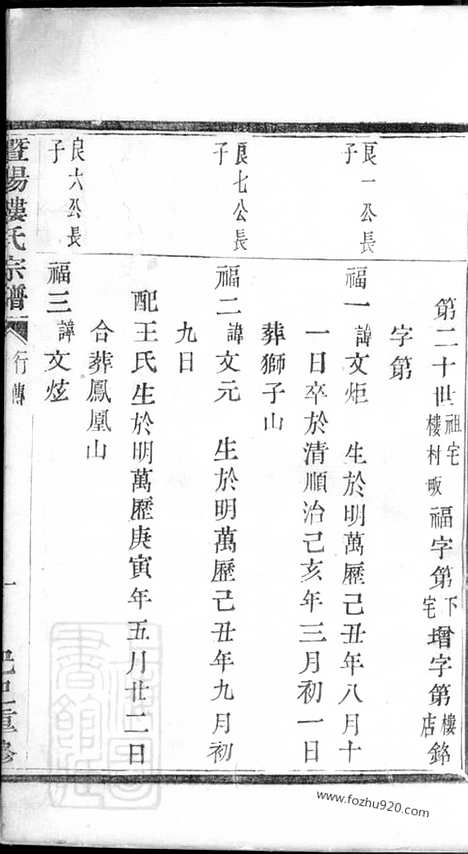 第二十世祖宅樓村畈福字第下宅增字第樓店銘
字第
良一公長子
福一諱文炬 生於明萬曆己丑年八月十
一日卒於清順治己亥年三月初一日
葬獅子山
良七公長子
福二諱文元 生於明萬曆己丑年九月初
九日
配王氏生於明萬曆庚寅年五月廿二日
合葬鳳凰山
良六公長子
福三諱文炫
暨陽樓氏宗譜 行傳 一 己巳重修
www.fozhu920.com